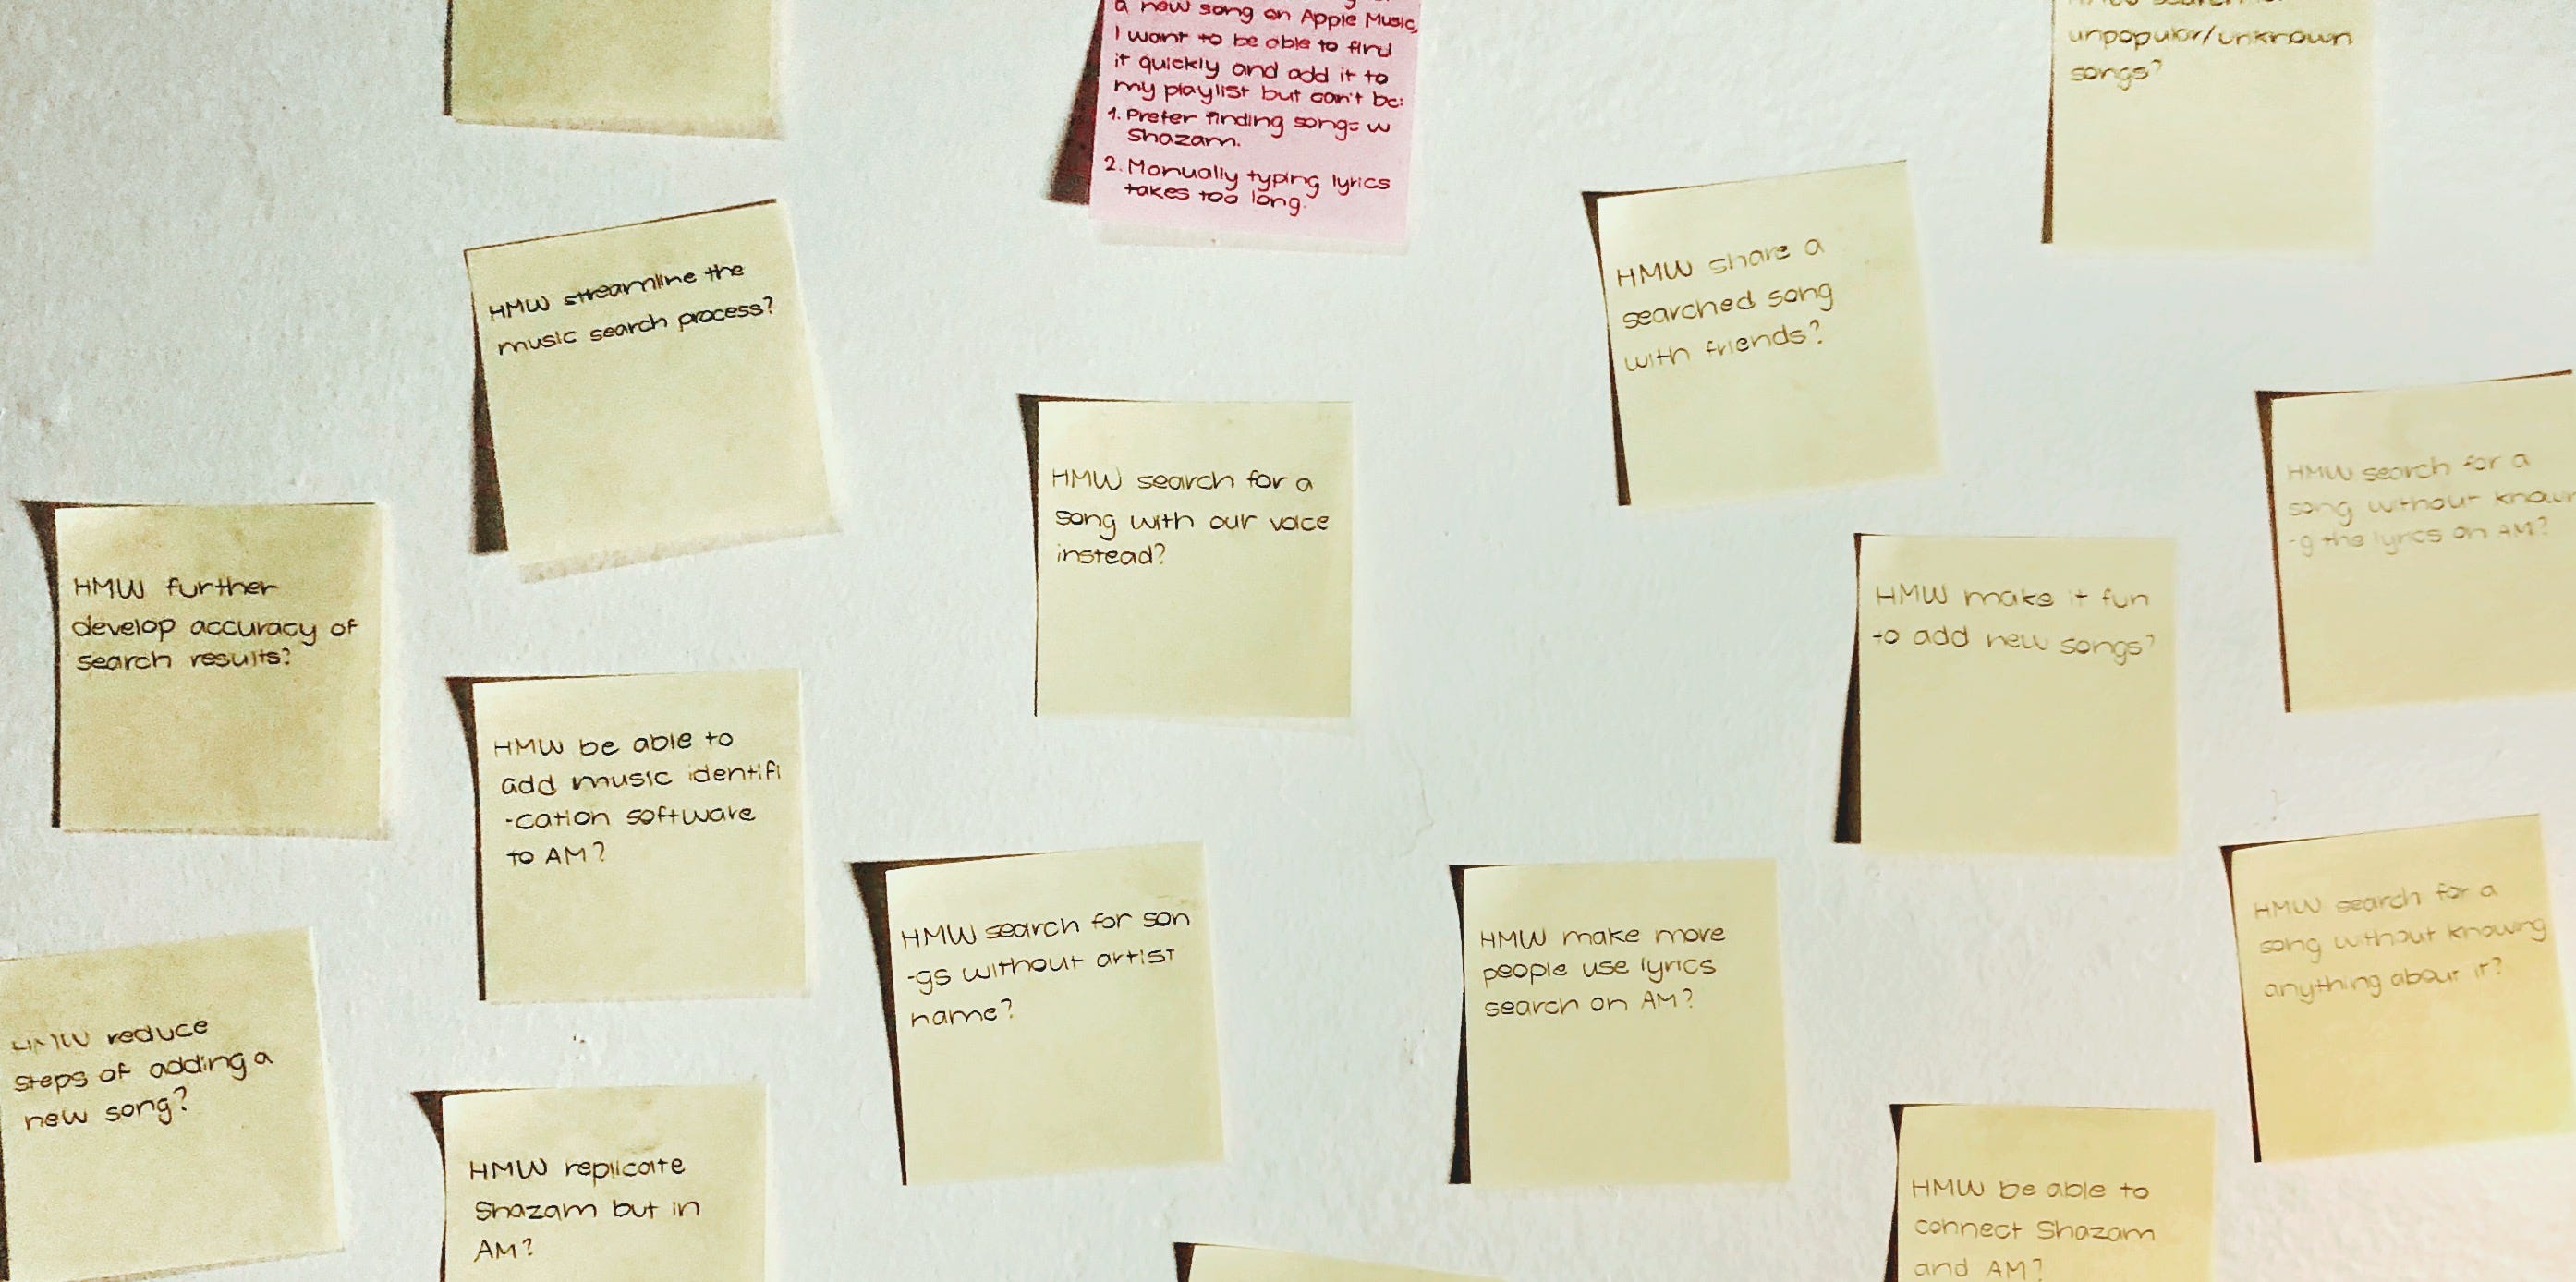 a new song on Apple Music,
I want to be able to find
it quickly and add it to
my playlist but can't bc:
1. Prefer finding songs w
Shazam.
2. Manually typing lyrics
takes too long.
unpopular/unknown
songs?
HMW streamline the
music search process?
HMW share a
searched song
with friends?
HMW search for a
song with our voice
instead?
HMW search for a
song without knowin
-g the lyrics on AM?
HMW further
develop accuracy of
search results?
HMW make it fun
to add new songs?
HMW be able to
add music identifi
-cation software
to AM?
HMW search for son
-gs without artist
name?
HMW make more
people use lyrics
search on AM?
HMW search for a
song without knowing
anything about it?
HMW reduce
steps of adding a
new song?
HMW replicate
Shazam but in
AM?
HMW be able to
connect Shazam
and AM?